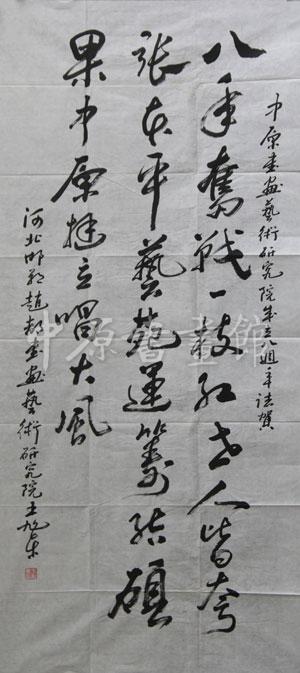 中原书画藝術研究院成立八週年誌賀
八年奮戰一枝紅世人皆夸
張平藝苑運籌結碩
果中原挺立唱大風
河北邯鄲趙都书画藝術研究院王旭东
中原書畫館